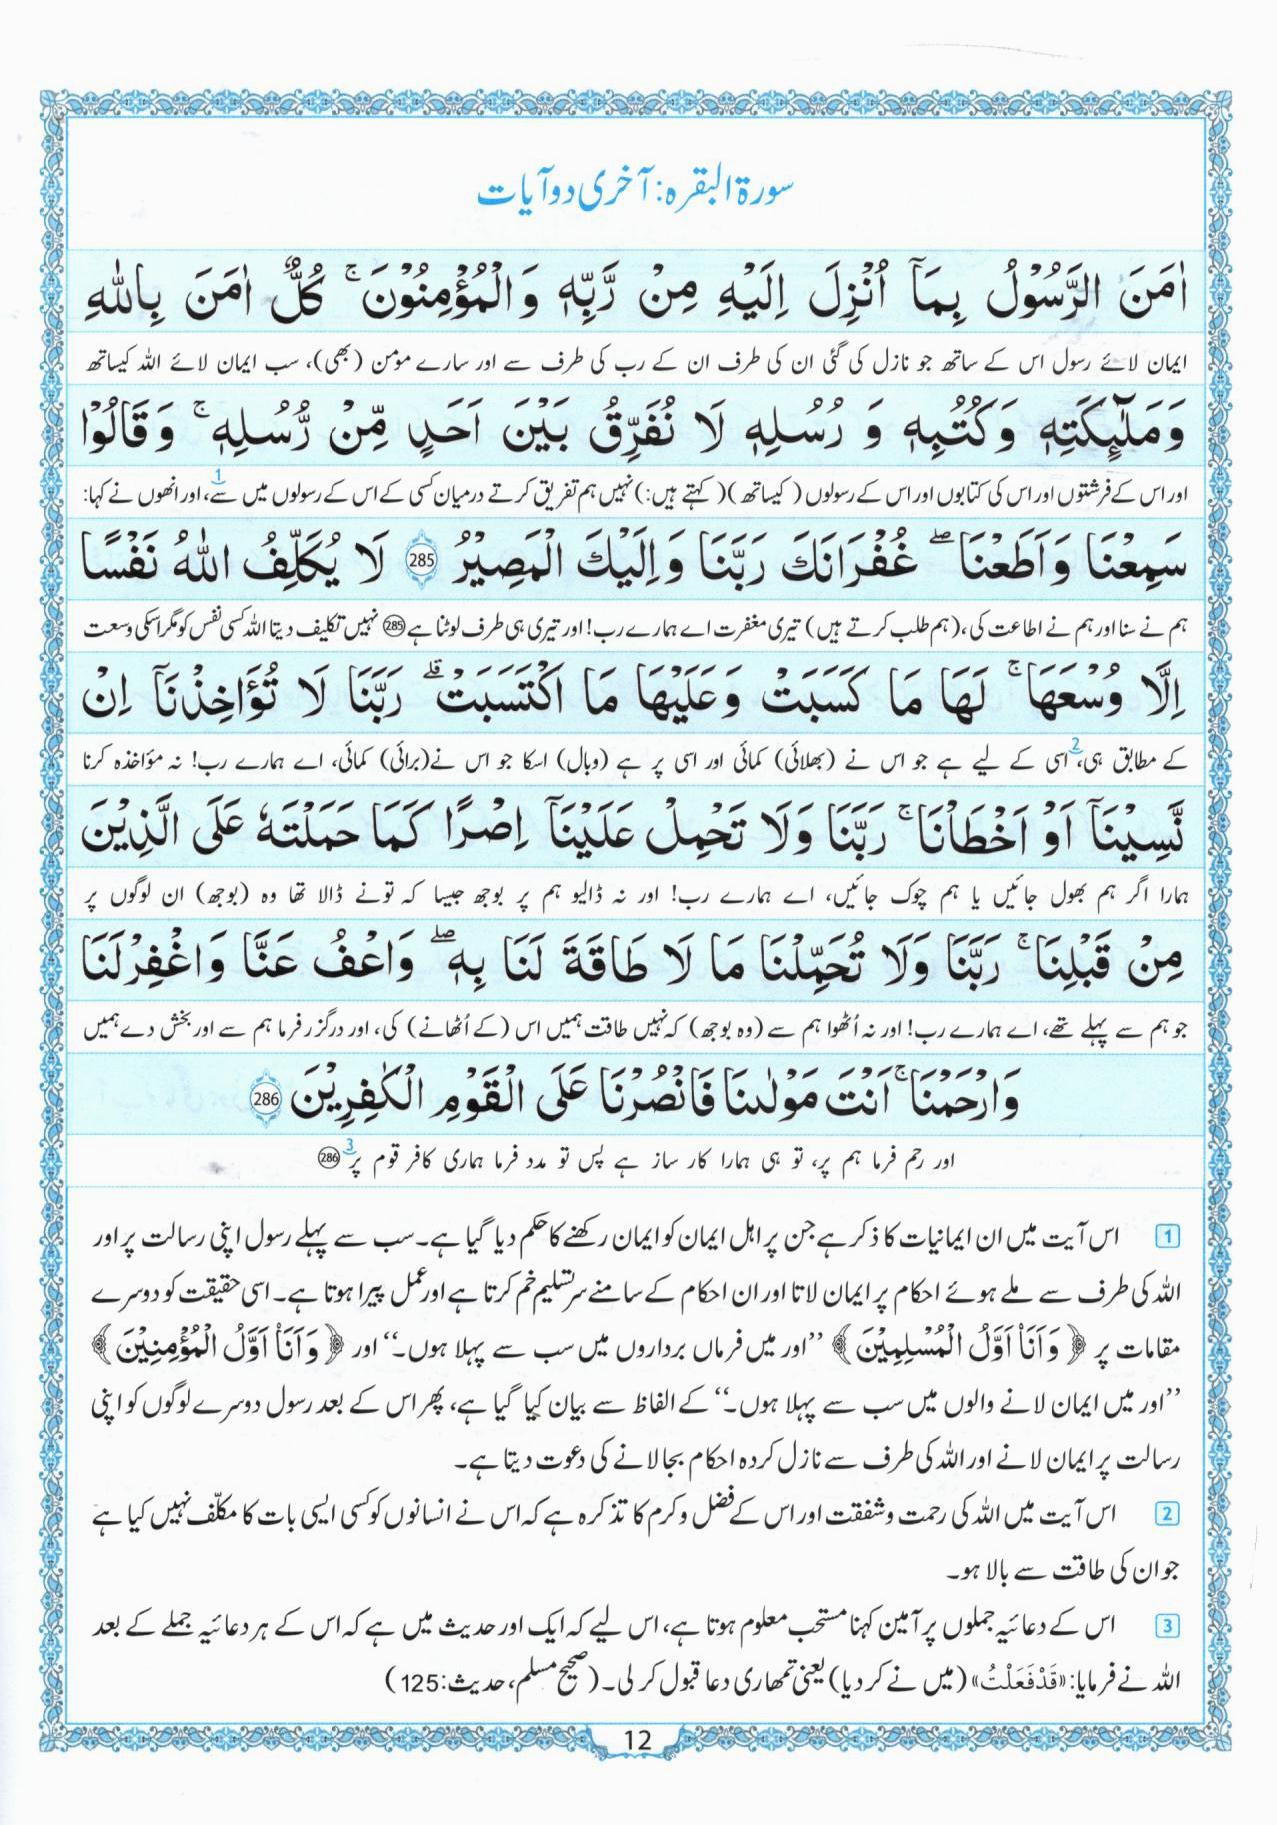 سورۃ البقرہ: آخری دو آیات
اٰمَنَ الرَّسُوْلُ بِمَاۤ اُنْزِلَ اِلَيْهِ مِنْ رَّبِّهٖ وَالْمُؤْمِنُوْنَ ۚ كُلٌّ اٰمَنَ بِاللّٰهِ
ایمان لائے رسول اس کے ساتھ جو نازل کی گئی ان کی طرف ان کے رب کی طرف سے اور سارے مومن (بھی)، سب ایمان لائے اللہ کیساتھ
وَمَلٰٓئِكَتِهٖ وَكُتُبِهٖ وَ رُسُلِهٖ لَا نُفَرِّقُ بَيْنَ اَحَدٍ مِّنْ رُّسُلِهٖ ۚ وَقَالُوْا
اور اس کے فرشتوں اور اس کی کتابوں اور اس کے رسولوں (کیساتھ)( کہتے ہیں:) نہیں ہم تفریق کرتے درمیان کسی کے اس کے رسولوں میں سے1، اور انھوں نے کہا:
سَمِعْنَا وَاَطَعْنَا ۖ غُفْرَانَكَ رَبَّنَا وَاِلَيْكَ الْمَصِيْرُ 285 لَا يُكَلِّفُ اللّٰهُ نَفْسًا
ہم نے سنا اور ہم نے اطاعت کی، (ہم طلب کرتے ہیں) تیری مغفرت اے ہمارے رب! اور تیری ہی طرف لوٹنا ہے 285 نہیں تکلیف دیتا اللہ کسی نفس کو مگر اسکی وسعت
اِلَّا وُسْعَهَا ۚ لَهَا مَا كَسَبَتْ وَعَلَيْهَا مَا اكْتَسَبَتْ ۗ رَبَّنَا لَا تُؤَاخِذْنَاۤ اِنْ
کے مطابق ہی2، اسی کے لیے ہے جو اس نے (بھلائی) کمائی اور اسی پر ہے (وبال) اسکا جو اس نے(برائی) کمائی، اے ہمارے رب! نہ مؤاخذہ کرنا
نَّسِيْنَاۤ اَوْ اَخْطَاْنَا ۚ رَبَّنَا وَلَا تَحْمِلْ عَلَيْنَاۤ اِصْرًا كَمَا حَمَلْتَهٗ عَلَى الَّذِيْنَ
ہمارا اگر ہم بھول جائیں یا ہم چوک جائیں، اے ہمارے رب! اور نہ ڈالیو ہم پر بوجھ جیسا کہ تونے ڈالا تھا وہ (بوجھ) ان لوگوں پر
مِنْ قَبْلِنَا ۚ رَبَّنَا وَلَا تُحَمِّلْنَا مَا لَا طَاقَةَ لَنَا بِهٖ ۖ وَاعْفُ عَنَّا وَاغْفِرْلَنَا
جو ہم سے پہلے تھے، اے ہمارے رب! اور نہ اُٹھوا ہم سے (وہ بوجھ) کہ نہیں طاقت ہمیں اس (کے اُٹھانے) کی، اور درگزر فرما ہم سے اور بخش دے ہمیں
وَارْحَمْنَا ۚ اَنْتَ مَوْلٰىنَا فَانْصُرْنَا عَلَى الْقَوْمِ الْكٰفِرِيْنَ 286
اور رحم فرما ہم پر، تو ہی ہمارا کار ساز ہے پس تو مدد فرما ہماری کافر قوم پر3 286
1 اس آیت میں ان ایمانیات کا ذکر ہے جن پر اہل ایمان کو ایمان رکھنے کا حکم دیا گیا ہے۔ سب سے پہلے رسول اپنی رسالت پر اور
اللہ کی طرف سے ملے ہوئے احکام پر ایمان لاتا اور ان احکام کے سامنے سرتسلیم خم کرتا ہے اور عمل پیرا ہوتا ہے۔ اسی حقیقت کو دوسرے
مقامات پر ﴿ وَاَنَاْ اَوَّلُ الْمُسْلِمِيْنَ ﴾ ’’اور میں فرماں برداروں میں سب سے پہلا ہوں۔‘‘ اور ﴿ وَاَنَاْ اَوَّلُ الْمُؤْمِنِيْنَ ﴾
’’اور میں ایمان لانے والوں میں سب سے پہلا ہوں۔‘‘ کے الفاظ سے بیان کیا گیا ہے، پھر اس کے بعد رسول دوسرے لوگوں کو اپنی
رسالت پر ایمان لانے اور اللہ کی طرف سے نازل کردہ احکام بجا لانے کی دعوت دیتا ہے۔
2 اس آیت میں اللہ کی رحمت و شفقت اور اس کے فضل و کرم کا تذکرہ ہے کہ اس نے انسانوں کو کسی ایسی بات کا مکلّف نہیں کیا ہے
جو ان کی طاقت سے بالا ہو۔
3 اس کے دعائیہ جملوں پر آمین کہنا مستحب معلوم ہوتا ہے، اس لیے کہ ایک اور حدیث میں ہے کہ اس کے ہر دعائیہ جملے کے بعد
اللہ نے فرمایا: «قَدْفَعَلْتُ» (میں نے کر دیا) یعنی تمھاری دعا قبول کر لی۔ (صحیح مسلم، حدیث: 125)
12